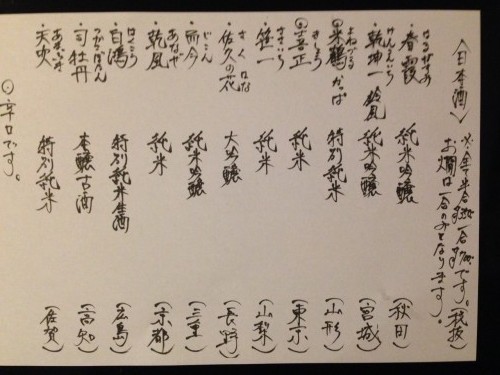 〈日本酒〉
です。(税抜)
お燗は一合のみとなります。
はるがすみ
・春霞 純米吟醸 (秋田)
けんこんいち
・乾坤一 純米吟醸 (宮城)
よねつる
・米鶴 かっぱ 特別純米 (山形)
きしょう
⊙喜正 純米 (東京)
ささいち
・笹一 純米 (山梨)
さく はな
・佐久の花 大吟醸 (長野)
じこん
・而今 純米吟醸 (三重)
・乾風 純米 (京都)
はくこう
・白鴻 特別純米生酒 (広島)
つかさぼたん
・司牡丹 本醸古酒 (高知)
あまぶき
・天吹 特別純米 (佐賀)
⊙辛口です。